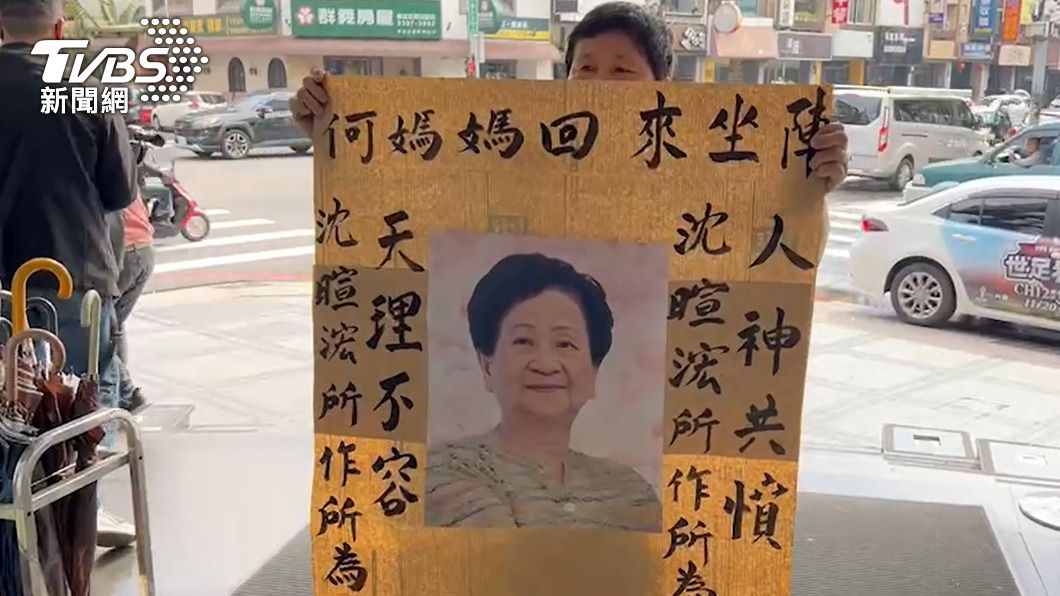 TVBS
新聞網
群義房屋
何媽媽回來坐陣
人神共憤
沈暄浤所作所為
天理不容
沈暄浤所作所為